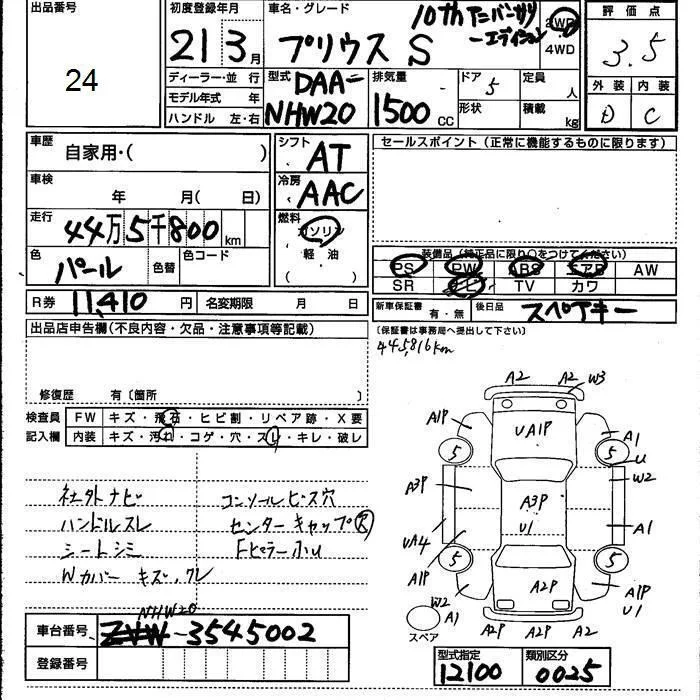 出品番号
24
初度登録年月
21 3月
車名・グレード
プリウス S
10thアニバーサリーエディション
2WD
4WD
評価点
3.5
外装 内装
D C
ディーラー・並 行
モデル年式 年
ハンドル 左・右
型式
DAA-
NHW20
排気量
1500cc
ドア 5
形状
定員 人
積載 kg
車歴
自家用・( )
車検
年 月( 日)
走行
44万5千800km
色
パール
色替
色コード
シフト
AT
冷房
AAC
燃料
ガソリン
軽 油
( )
セールスポイント (正常に機能するものに限ります)
装備品 (純正品に限り○をつけてください)
PS PW ABS エアB AW
SR ナビ TV カワ
R券 11,410 円
名変期限 月 日
新車保証書 有・無
後日品 スペアキー
(保証書は事務局へ提出して下さい)
445,816km
出品店申告欄(不良内容・欠品・注意事項等記載)
修復歴 有〔箇所 〕
検査員
記入欄
FW キズ・飛石・ヒビ割・リペア跡・X要
内装 キズ・汚れ・コゲ・穴・スレ・キレ・破レ
社外ナビ
ハンドルスレ
シートシミ
Wカバー キズ、ワレ
コンソールビス穴
センターキャップ ス
Fピラー小U
A2 A2 W3
A1P UA1P A1
5 5 U
W2
A3P A3P
U1 A1
UA4
5 5
A1P A2P A1P
U1
W2
A1 A2P A2P A2
スペア
車台番号
NHW20
ZVW-3545002
登録番号
型式指定
12100
類別区分
0025